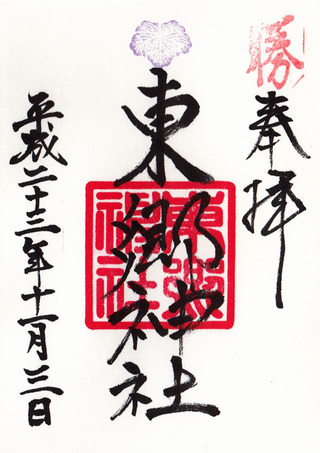 勝
奉拝
東郷神社
東郷神社
平成二十三年十一月三日